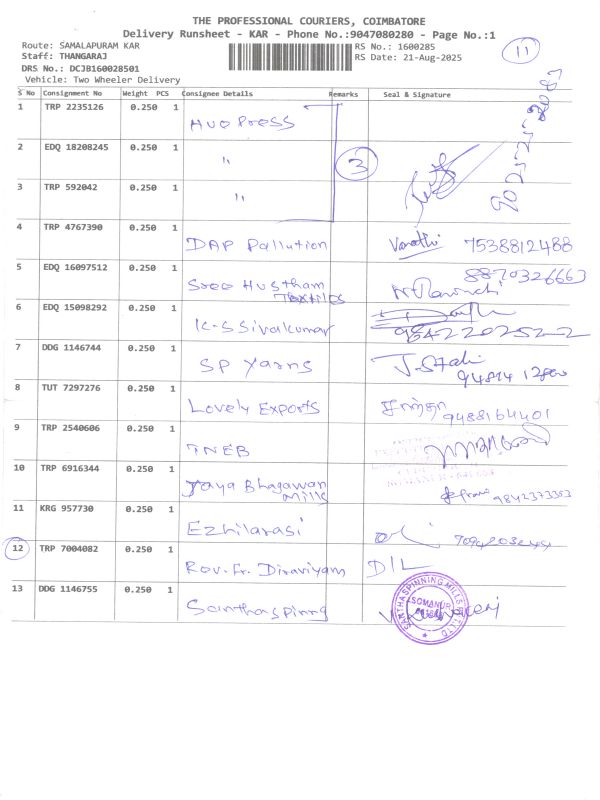 THE PROFESSIONAL COURIERS, COIMBATORE
Delivery Runsheet - KAR - Phone No.:9047080280 - Page No.:1
Route: SAMALAPURAM KAR
RS No.: 1600285
11
Staff: THANGARAJ
RS Date: 21-Aug-2025
DRS No.: DCJB160028501
Vehicle: Two Wheeler Delivery
S No Consignment No Weight PCS Consignee Details Remarks Seal & Signature
1 TRP 2235126 0.250 1 HUO Press
2 EDQ 18208245 0.250 1 〃 3
3 TRP 592042 0.250 1 〃
4 TRP 4767390 0.250 1 DAP Pollution 7538812488
5 EDQ 16097512 0.250 1 Sree Hustham 8870326663
Textiles
6 EDQ 15098292 0.250 1 K-S Sivakumar 9842207522
7 DDG 1146744 0.250 1 SP Yarns
8 TUT 7297276 0.250 1 Lovely Exports 9488164401
9 TRP 2540606 0.250 1 TNEB
10 TRP 6916344 0.250 1 Jaya Bhagawan
Mills 9842373353
11 KRG 957730 0.250 1 Ezhilarasi
12 TRP 7004082 0.250 1 Rov. Fr. Diraviyam D/L
13 DDG 1146755 0.250 1 Santhaspinng
SANTHA SPINNING MILLS PVT LTD
SOMANUR